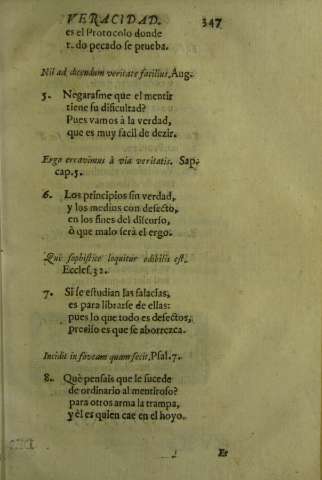 VERACIDAD. 347
es el Protocolo donde
t do pecado se prueba.
Nil ad dicendum veritate facilius, Aug.
5. Negarasme que el mentir
tiene su dificultad?
Pues vamos à la verdad,
que es muy facil de dezir.
Ergo erravimus à via veritatis. Sap.
cap. 5.
6. Los principios sin verdad,
y los medios con defecto,
en los fines del discurso,
ò que malo serà el ergo.
Qui sophisticè loquitur odibilis est.
Eccles. 32.
7. Si se estudian las falacias,
es para librarse de ellas:
pues lo que todo es defectos,
preciso es que se aborrezca.
Incidit in foveam quam fecit, Psal. 7.
8. Què pensais que le sucede
de ordinario al mentiroso?
para otros arma la trampa,
y èl es quien cae en el hoyo.
Et